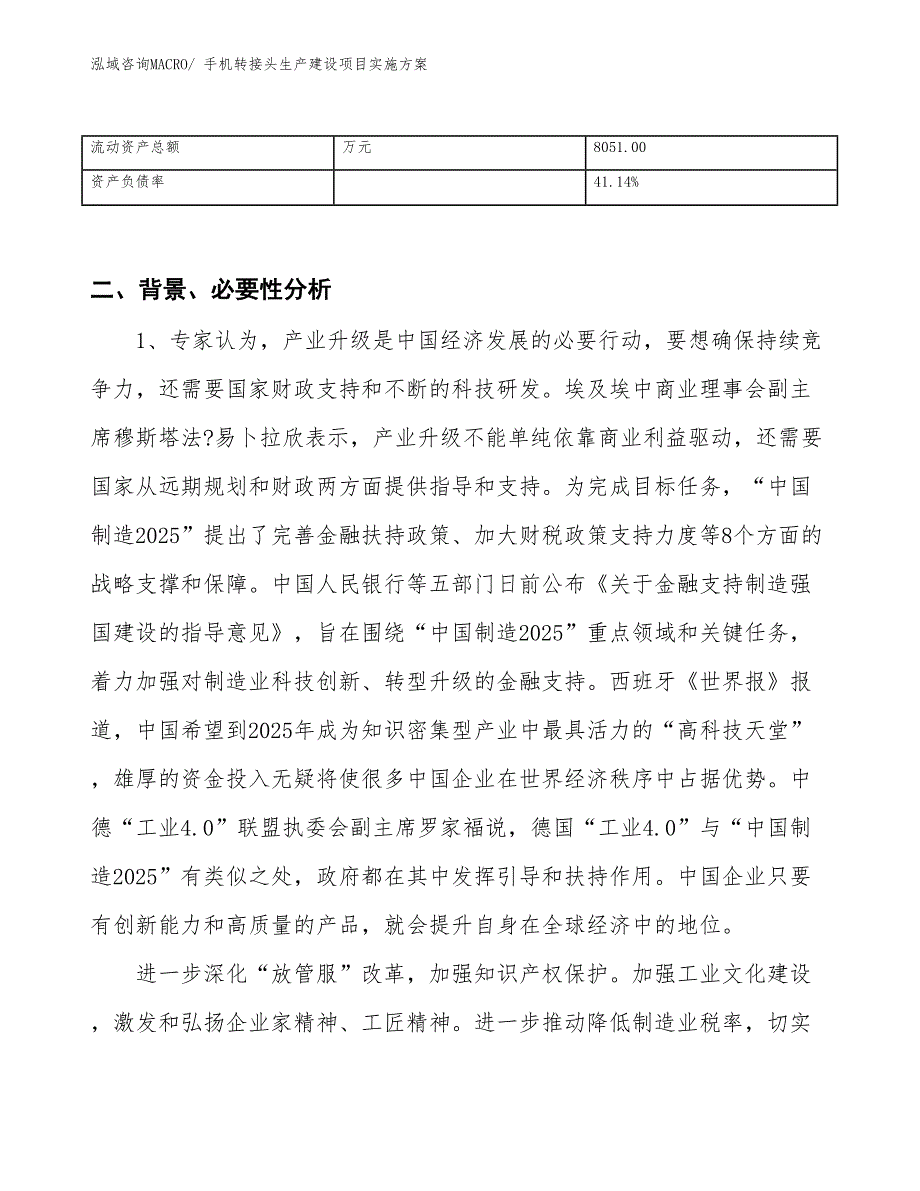 泓域咨询MACRO/ 手机转接头生产建设项目实施方案
流动资产总额 万元 8051.00
资产负债率 41.14%
二、背景、必要性分析
1、专家认为，产业升级是中国经济发展的必要行动，要想确保持续竞
争力，还需要国家财政支持和不断的科技研发。埃及埃中商业理事会副主
席穆斯塔法?易卜拉欣表示，产业升级不能单纯依靠商业利益驱动，还需要
国家从远期规划和财政两方面提供指导和支持。为完成目标任务，“中国
制造2025”提出了完善金融扶持政策、加大财税政策支持力度等8个方面的
战略支撑和保障。中国人民银行等五部门日前公布《关于金融支持制造强
国建设的指导意见》，旨在围绕“中国制造2025”重点领域和关键任务，
着力加强对制造业科技创新、转型升级的金融支持。西班牙《世界报》报
道，中国希望到2025年成为知识密集型产业中最具活力的“高科技天堂”
，雄厚的资金投入无疑将使很多中国企业在世界经济秩序中占据优势。中
德“工业4.0”联盟执委会副主席罗家福说，德国“工业4.0”与“中国制
造2025”有类似之处，政府都在其中发挥引导和扶持作用。中国企业只要
有创新能力和高质量的产品，就会提升自身在全球经济中的地位。
进一步深化“放管服”改革，加强知识产权保护。加强工业文化建设
，激发和弘扬企业家精神、工匠精神。进一步推动降低制造业税率，切实